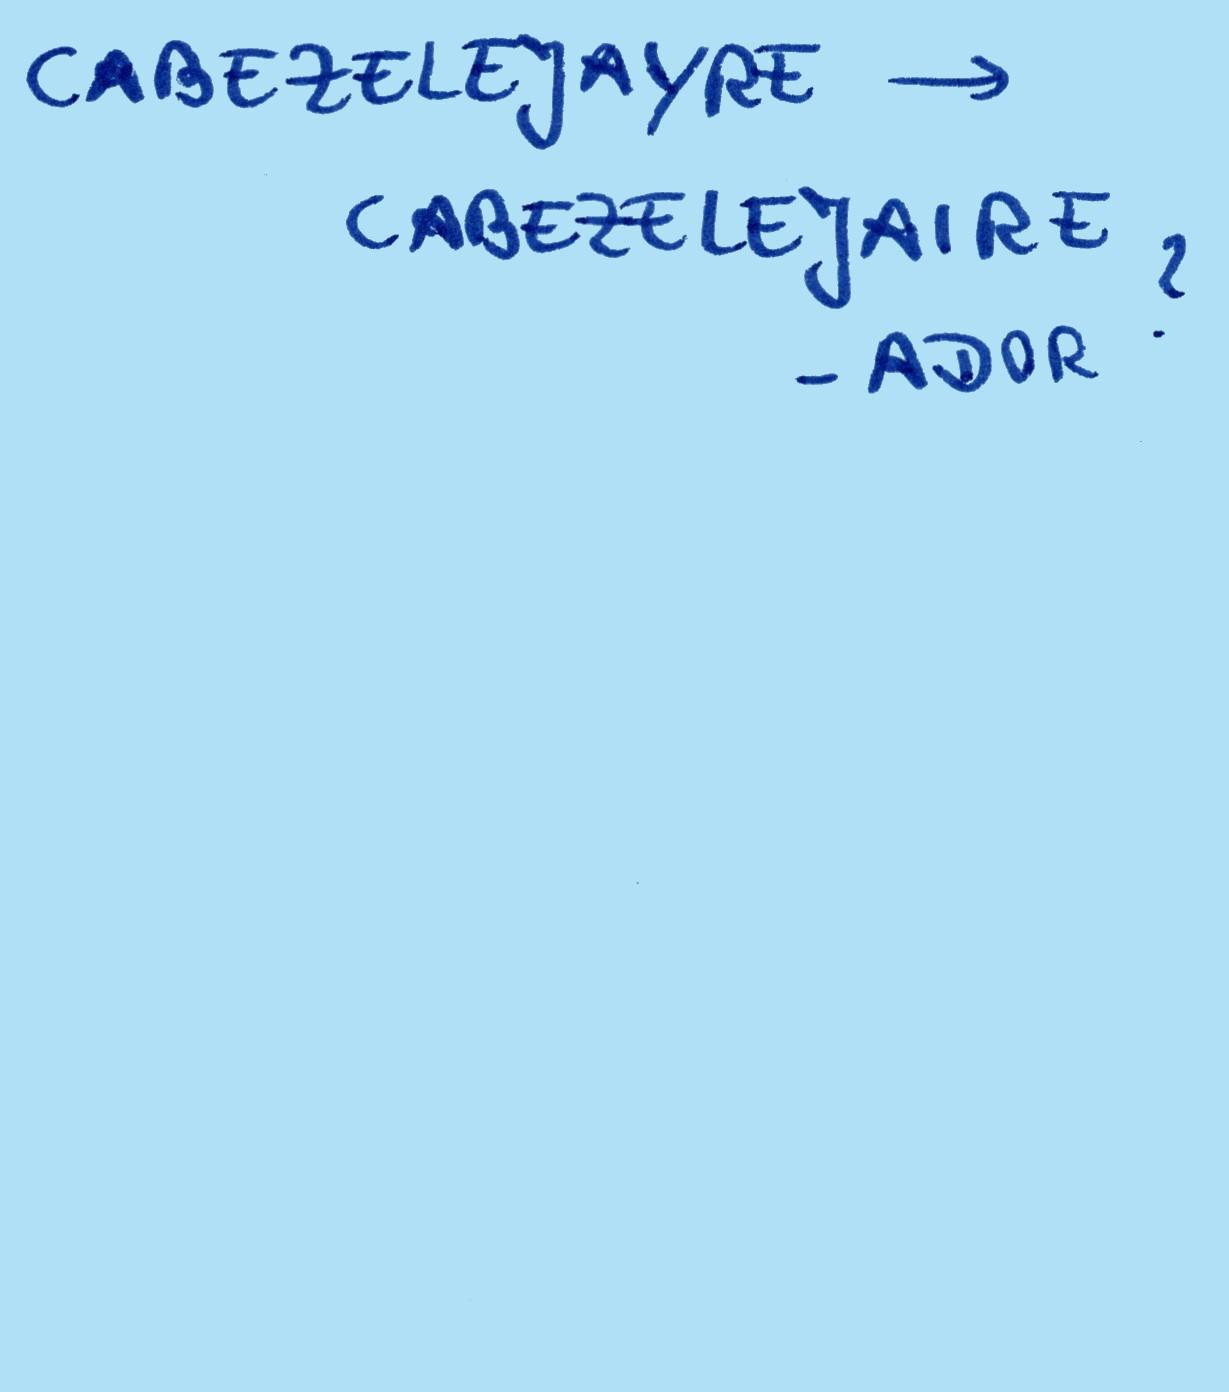 CABEZELEJAYRE →
CABEZELEJAIRE ?
- ADOR